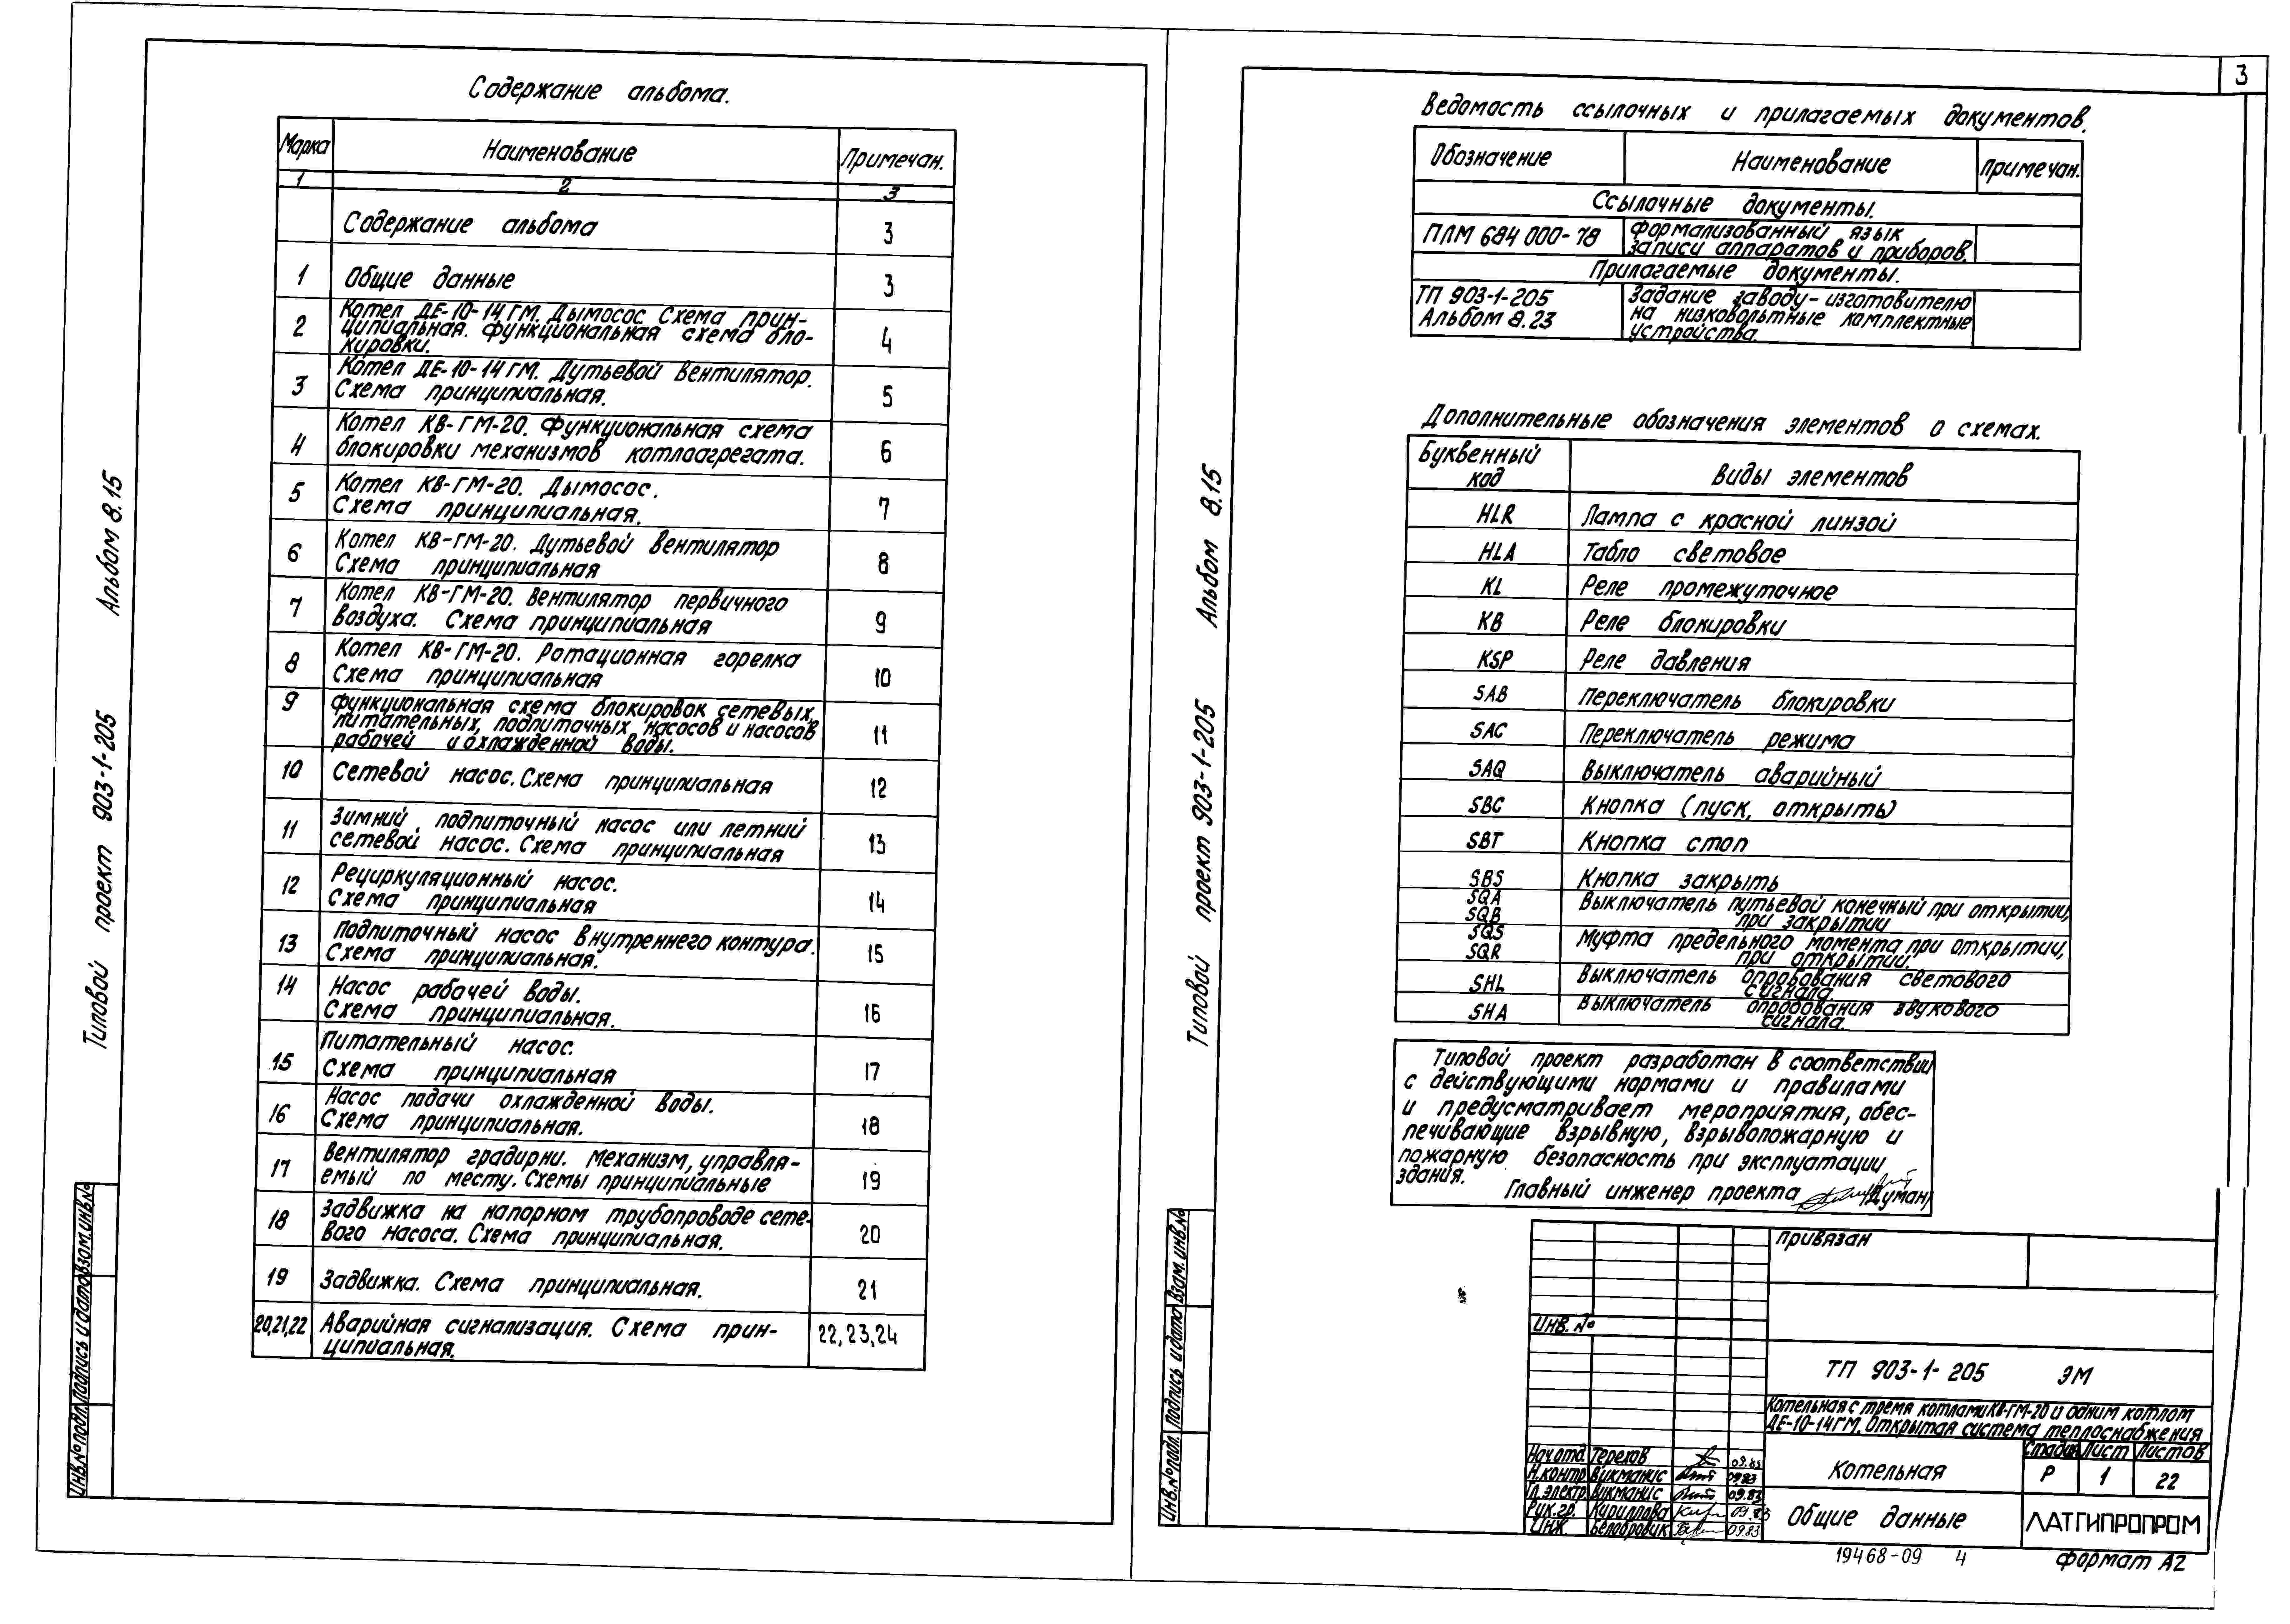 Содержание альбома.
Марка Наименование Примечан.
1 2 3
Содержание альбома 3
1 Общие данные 3
2 Котел ДЕ-10-14ГМ. Дымосос Схема прин-
ципиальная. Функциональная схема бло-
кировки. 4
3 Котел ДЕ-10-14ГМ. Дутьевой вентилятор.
Схема принципиальная. 5
4 Котел КВ-ГМ-20. Функциональная схема
блокировки механизмов котлоагрегата. 6
5 Котел КВ-ГМ-20. Дымосос.
Схема принципиальная. 7
6 Котел КВ-ГМ-20. Дутьевой вентилятор
Схема принципиальная 8
7 Котел КВ-ГМ-20. Вентилятор первичного
воздуха. Схема принципиальная 9
8 Котел КВ-ГМ-20. Ротационная горелка
Схема принципиальная 10
9 Функциональная схема блокировок сетевых,
питательных, подпиточных насосов и насосов
рабочей и охлажденной воды. 11
10 Сетевой насос. Схема принципиальная 12
11 Зимний подпиточный насос или летний
сетевой насос. Схема принципиальная 13
12 Рециркуляционный насос.
Схема принципиальная 14
13 Подпиточный насос внутреннего контура.
Схема принципиальная. 15
14 Насос рабочей воды.
Схема принципиальная. 16
15 Питательный насос.
Схема принципиальная 17
16 Насос подачи охлажденной воды.
Схема принципиальная. 18
17 Вентилятор градирни. Механизм, управля-
емый по месту. Схемы принципиальные 19
18 Задвижка на напорном трубопроводе сете-
вого насоса. Схема принципиальная. 20
19 Задвижка. Схема принципиальная. 21
20,21,22 Аварийная сигнализация. Схема прин-
ципиальная. 22,23,24
Типовой проект 903-1-205 Альбом 8.15
Инв.№подл. Подпись и дата Взам.инв.№
3
Ведомость ссылочных и прилагаемых документов.
Обозначение Наименование Примечан.
Ссылочные документы.
ПЛМ 684 000-78 Формализованный язык
записи аппаратов и приборов.
Прилагаемые документы.
ТП 903-1-205 Задание заводу-изготовителю
Альбом 8.23 на низковольтные комплектные
устройства.
Дополнительные обозначения элементов о схемах.
Буквенный код Виды элементов
HLR Лампа с красной линзой
HLA Табло световое
KL Реле промежуточное
KB Реле блокировки
KSP Реле давления
SAB Переключатель блокировки
SAC Переключатель режима
SAQ Выключатель аварийный
SBC Кнопка (пуск, открыть)
SBT Кнопка стоп
SBS Кнопка закрыть
SQA Выключатель путьевой конечный при открытии,
SQB при закрытии
SQS Муфта предельного момента при открытии,
SQR при открытии.
SHL Выключатель опробования светового
сигнала.
SHA Выключатель опробования звукового
сигнала.
Типовой проект разработан в соответствии
с действующими нормами и правилами
и предусматривает мероприятия, обес-
печивающие взрывную, взрывопожарную и
пожарную безопасность при эксплуатации
здания.
Главный инженер проекта /Думан/
Привязан
Инв. №
ТП 903-1-205 ЭМ
Котельная с тремя котлами КВ-ГМ-20 и одним котлом
ДЕ-10-14ГМ. Открытая система теплоснабжения
Нач.отд. Терехов 09.83
Н.контр. Викманис 09.83
Гл.электр. Викманис 09.83
Рук.гр. Кириллова 09.83
Инж. Белобровик 09.83
Котельная
Стадия Лист Листов
Р 1 22
Общие данные
ЛАТГИПРОПРОМ
19468-09 4
Формат А2
Типовой проект 903-1-205 Альбом 8.15
Инв.№подл. Подпись и дата Взам.инв.№